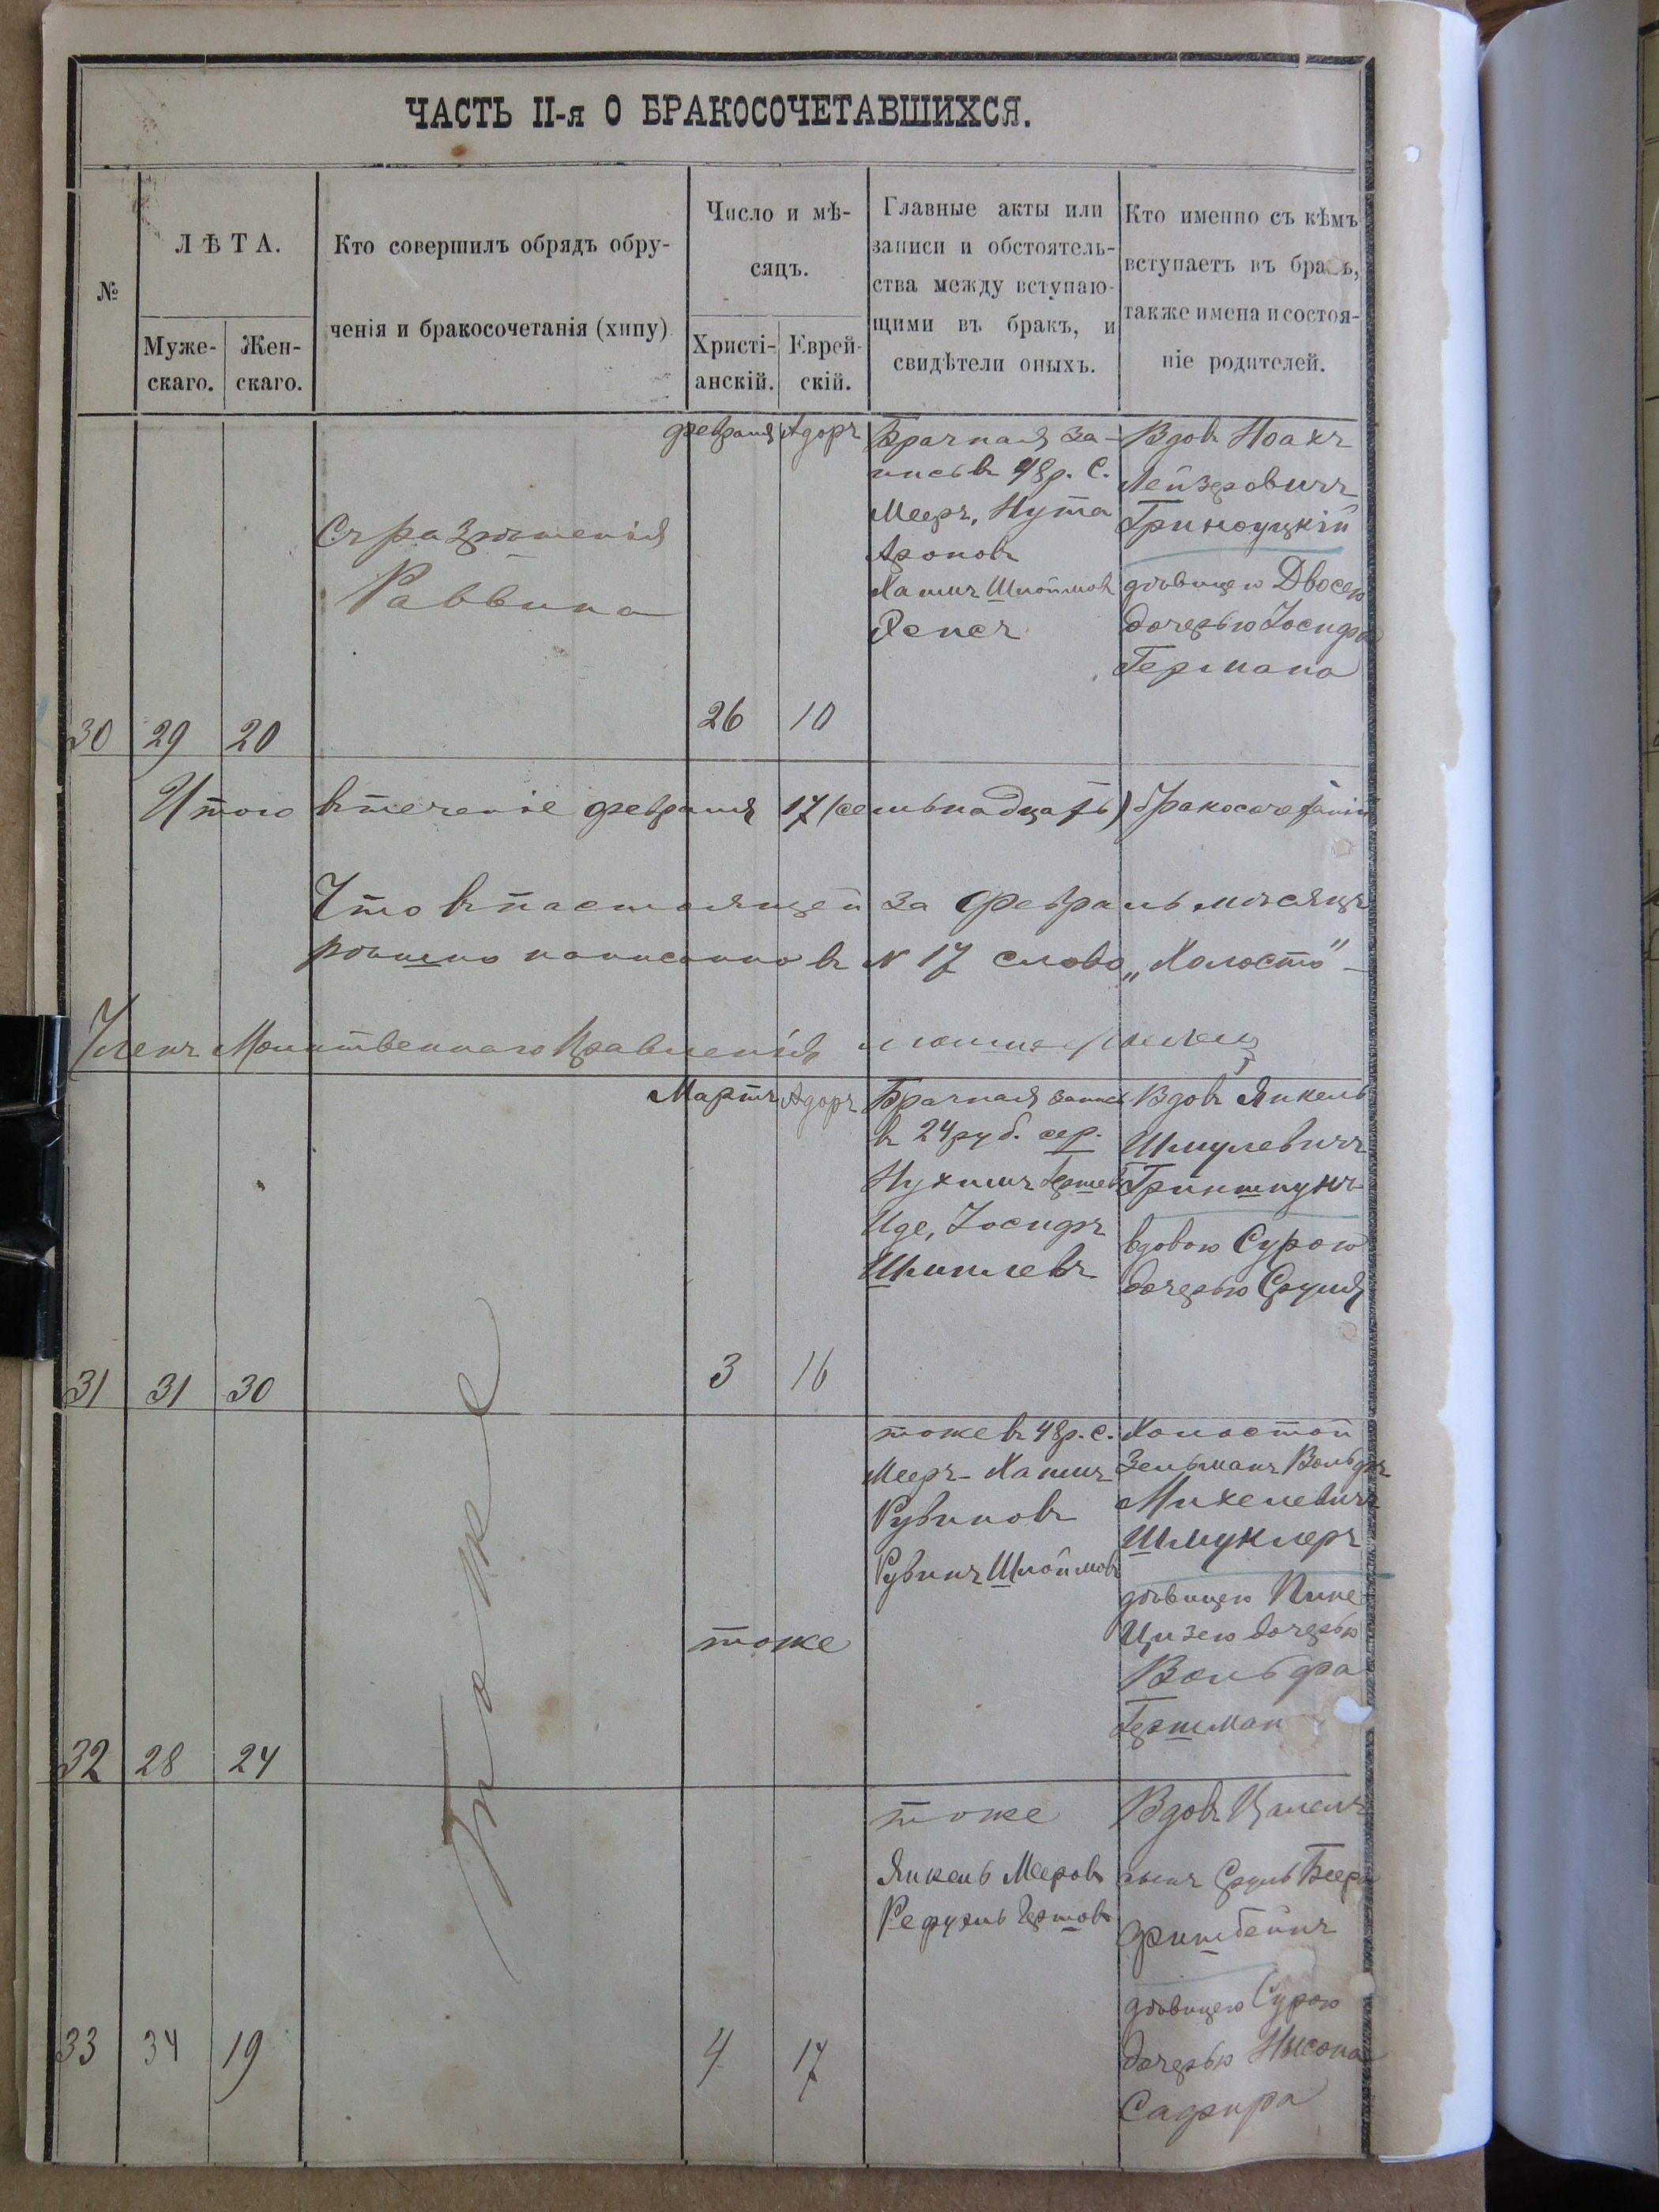 ЧАСТЬ II-я О БРАКОСОЧЕТАВШИХСЯ.
№
ЛѢТА.
Муже-
скаго.
Жен-
скаго.
Кто совершилъ обрядъ обру-
ченія и бракосочетанія (хипу)
Число и мѣ-
сяцъ.
Христі-
анскій.
Еврей-
скій.
Главные акты или
записи и обстоятель-
ства между вступаю-
щими въ бракъ, и
свидѣтели оныхъ.
Кто именно съ кѣмъ
вступаетъ въ бракъ,
также имена и состоя-
ніе родителей.
февраля Адоръ
30 29 20
Съ разрѣшенія
Раввина
26 10
Брачная за-
пись въ 48 р. С.
Мееръ, Нута
Ароновъ
Хаимъ Шлоймов
Вдовъ Ноахъ
Лейзеровичъ
Гриноуцкій
дѣвицею Двосею
дочерью Іосифа
Германа
Итого въ теченіе февраля 17 (семьнадцать) бракосочетаніи
Что въ настоящей за февраль мѣсяцъ
написанно въ N 17 слово „Холосто"
Членъ Молитвенного Правленія
Мартъ Адоръ
31 31 30
тоже
3 16
Брачная запись
въ 24 руб. сер.
Нухимъ
Иде, Іосифъ
Вдовъ Янкель
Шмулевичъ
Гриншпунъ
вдовою Сурою
дочерью Сруля
32 28 24
тоже
тоже въ 48 р. С.
Мееръ-Хаимъ
Рувиновъ
Рувинъ Шлоймовъ
Холостой
Зельманъ Вольфъ
Михелевичъ
Шмуклеръ
дѣвицею
дочерью
Вольфа
Гершман
33 34 19
4 17
тоже
Янкель Мееров
Рефуль Гершов
Вдовъ
сынъ Сруль Беера
Фишбейнъ
дѣвицею Сурою
дочерью Нысона
Сафира